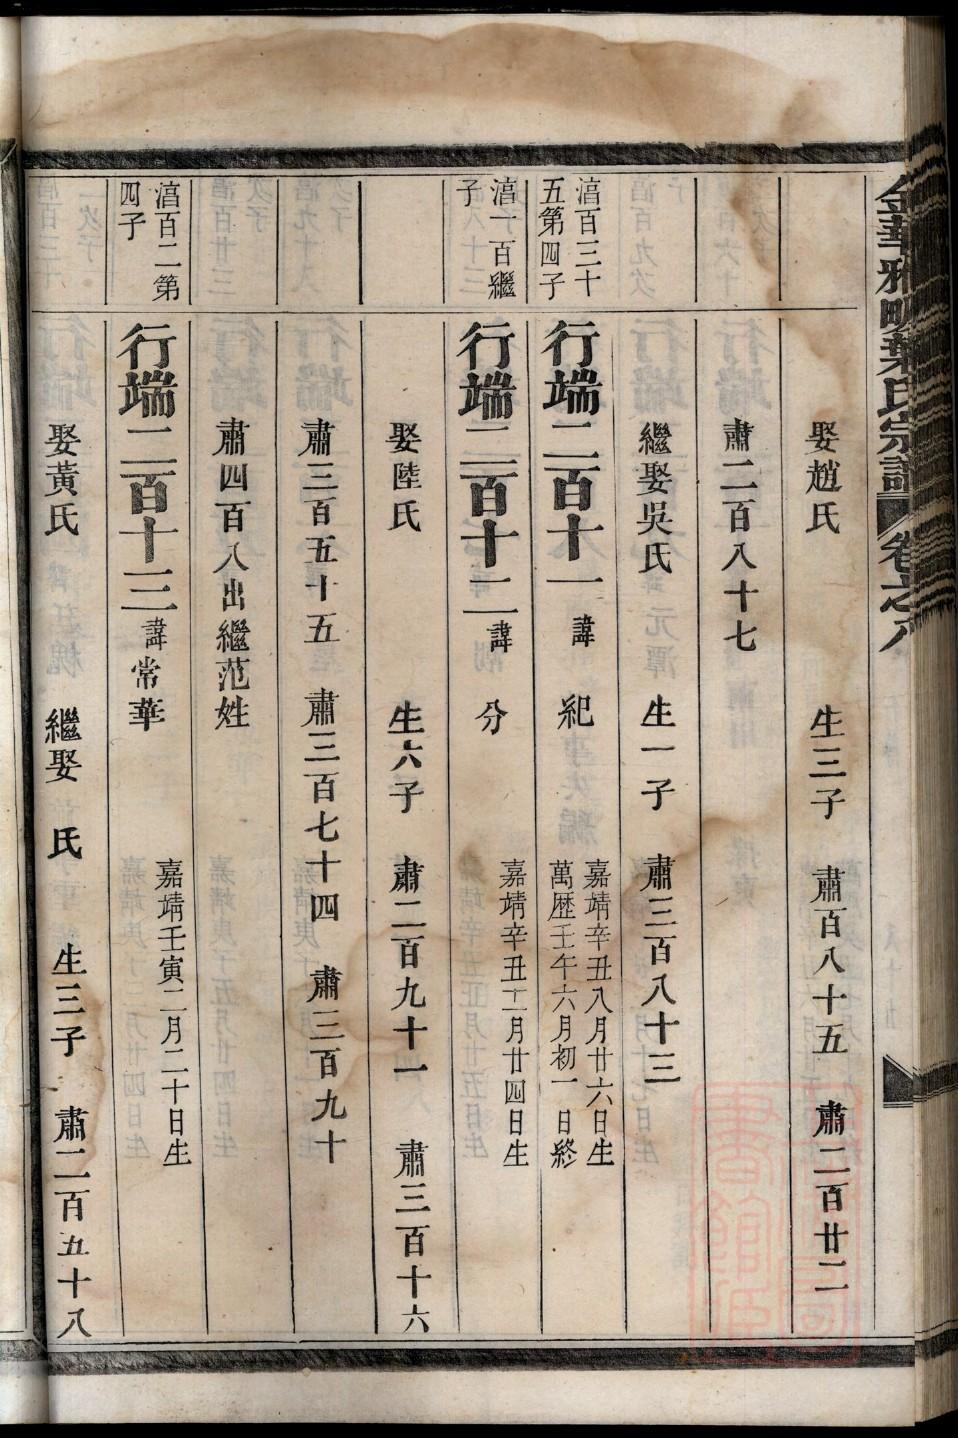 金華雅畈葉氏宗譜 卷之八
娶趙氏 生三子 肅百八十五 肅二百廿二
肅二百八十七
繼娶吳氏 生一子 肅三百八十三
湻百三十
五第四子
行端二百十一 諱 紀 嘉靖辛丑八月廿六日生
萬歷壬午六月初一日終
湻一百繼
子
行端二百十二 諱 分 嘉靖辛丑十二月廿四日生
娶陸氏 生六子 肅二百九十一 肅三百十六
肅三百五十五 肅三百七十四 肅三百九十
肅四百八出繼范姓
湻百二第
四子
行端二百十三 諱常華 嘉靖壬寅二月二十日生
娶黃氏 繼娶 氏 生三子 肅二百五十八